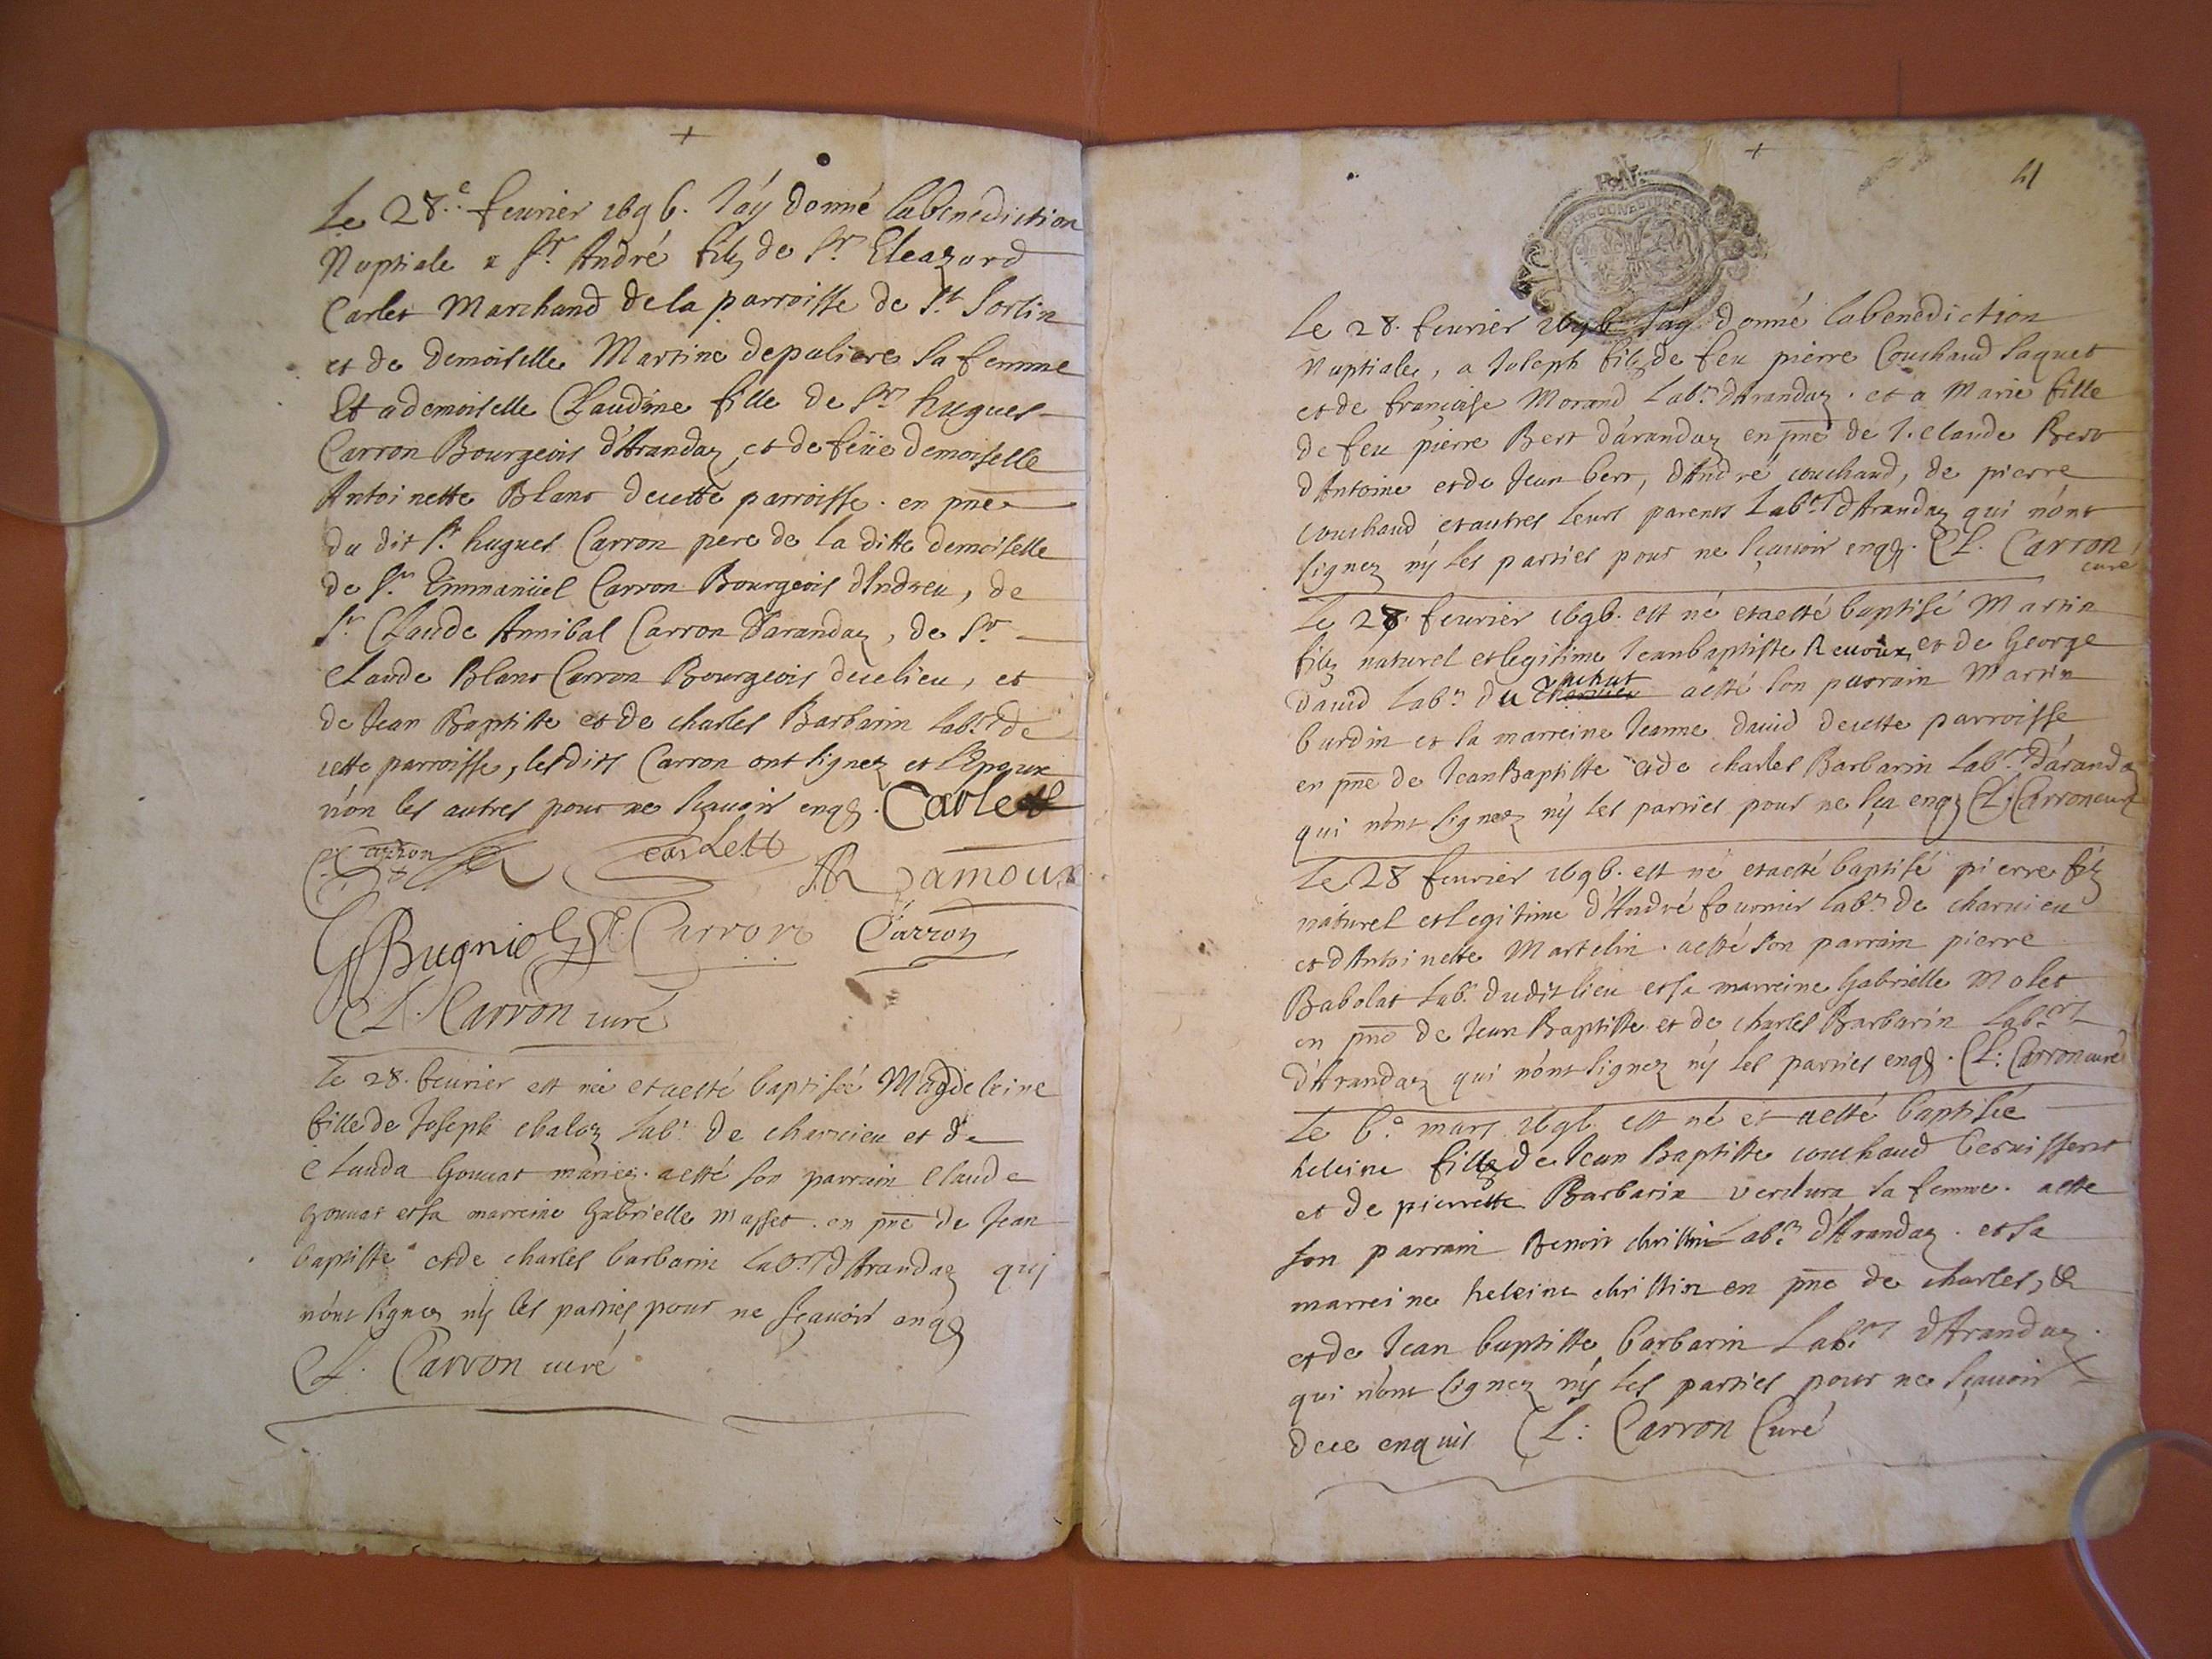 Le 28.e feurier 1696. J'ay donné la benediction
Nuptiale a Sr. André filz de Sr. Eleazard
Carlet Marchand de la parroisse de St. Sorlin
et de demoiselle Martine depuliere sa femme
Et a demoiselle Claudine fille de Sr. hugues
Carron Bourgeois d'Arandaz, et de feüe demoiselle
Antoinette Blanc decette parroisse. en pnce
du dit Sr. hugues Carron pere de la ditte demoiselle
de Sr. Emmanüel Carron Bourgeois d'Indrieu, de
Sr. Claude Annibal Carron d'arandaz, de Sr.
claude Blanc Carron Bourgeois decelieu, et
de Jean Baptiste et de charles Barbarin labrs. de
cette parroisse, lesdits Carron ont signez et l'Epoux
n'on les autres pour ne sçauoir enqs. Carlett
Carron Carlett Damoux
Bugniol Carron Carron
CL. Carron curé
Le 28. feurier est née et aesté baptiseé Magdeleine
fille de Joseph chaloz labr. de charuieu et de
clauda Gouuat mariez. aesté son parrain claude
gouuat et sa marreine Gabrielle Masset. en pne de Jean
baptiste et de charles barbarin labrs. d'Arandaz qui
n'ont signez ny les parties pour ne sçauoir enqs
CL. Carron curé
41
Le 28. feurier 1696 J'ay donné la benediction
Nuptiale, a Joseph filz de feu pierre Couchaud Jaquet
et de françoise Morand Labr. d'Arandaz. et a Marie fille
de feu pierre Bert d'arandaz en pne de J. claude Bert
d'Antoine et de Jean bert, d'André couchaud, de pierre
couchaud et autres leurs parents Labrs. d'Arandaz qui n'ont
signez ny les parties pour ne sçauoir enqs. CL. Carron
curé
Le 28. feurier 1696. est né et aesté baptisé Martin
filz naturel et legitime Jeanbaptiste Reuoux et de George
dauid labr. du charuieu achat aesté son parrain Martin
burdin et la marreine Jeanne dauid decette parroisse
en pne de Jean Baptiste et de charles Barbarin labrs. d'arandaz
qui n'ont signez ny les parties pour ne sça enqs CL. Carron curé
Le 28 feurier 1696. est né et aesté baptisé pierre filz
naturel et legitime d'André fournier labr. de charuieu
et d'Antoinette Martelin. aesté son parrain pierre
Babolat labr. dudit lieu et sa marreine Gabrielle Molet
en pne de Jean Baptiste et de charles Barbarin labrs.
d'Arandaz qui n'ont signez ny les parties enqs. CL. Carron curé
Le 6.e mars 1696 est né et aesté baptisée
heleine fille de Jean Baptiste couchaud
et de pierrette Barbarin verdura sa femme. aeste
son parrain Benoit christin Labr. d'Arandaz. et sa
marreine heleine christin en pne de charles, &
et de Jean baptiste barbarin Labrs. d'Arandaz.
qui n'ont signez ny les parties pour ne sçauoir
dece enquis CL. Carron Curé